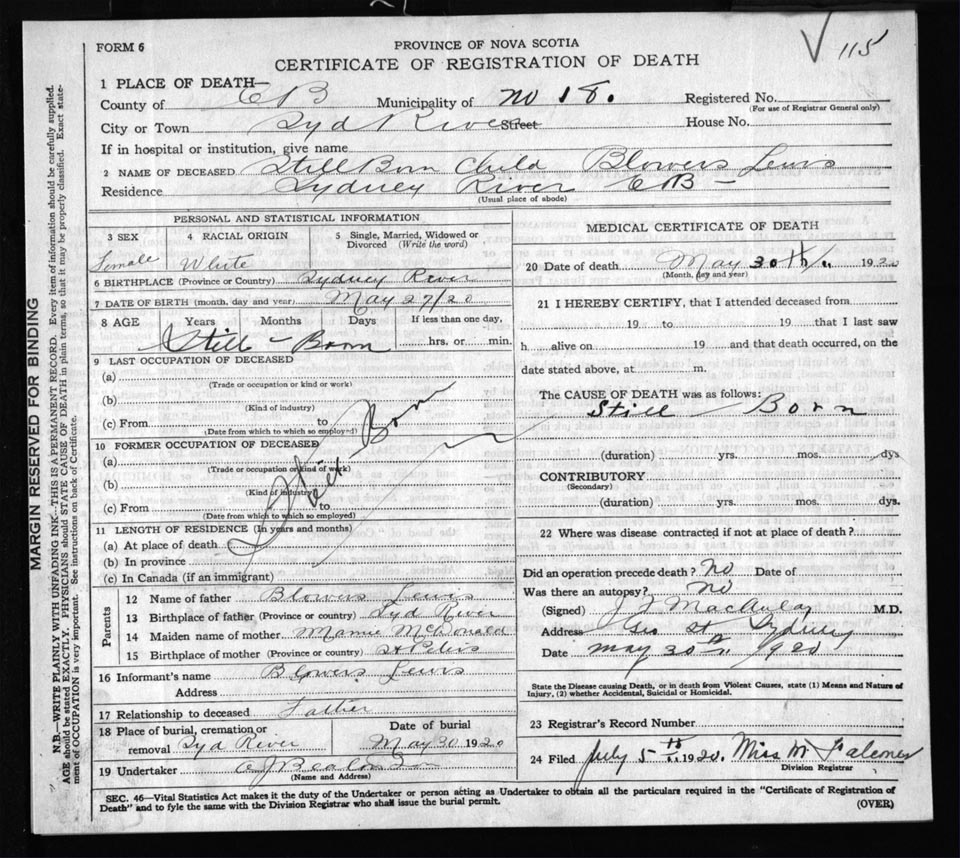 115
FORM 6
PROVINCE OF NOVA SCOTIA
CERTIFICATE OF REGISTRATION OF DEATH
1 PLACE OF DEATH—
County of C B Municipality of No 18. Registered No.
(For use of Registrar General only)
City or Town Syd River Street House No.
If in hospital or institution, give name
2 NAME OF DECEASED Still Born Child Blowers Lewis
Residence Sydney River C B —
(Usual place of abode)
PERSONAL AND STATISTICAL INFORMATION
3 SEX 4 RACIAL ORIGIN 5 Single, Married, Widowed or Divorced (Write the word)
Female White
6 BIRTHPLACE (Province or Country) Sydney River
7 DATE OF BIRTH (month, day and year) May 27/20
8 AGE Years Months Days If less than one day,
hrs. or min.
Still – Born
9 LAST OCCUPATION OF DECEASED
(a)
(Trade or occupation or kind or work)
(b)
(Kind of industry)
(c) From to
(Date from which to which so employed)
10 FORMER OCCUPATION OF DECEASED
(a)
(Trade or occupation or kind of work)
(b)
(Kind of industry)
(c) From to
(Date from which to which so employed)
Still Born
11 LENGTH OF RESIDENCE (In years and months)
(a) At place of death
(b) In province
(c) In Canada (if an immigrant)
Parents
12 Name of father Blowers Lewis
13 Birthplace of father (Province or country) Syd River
14 Maiden name of mother Mamie McDonald
15 Birthplace of mother (Province or country) St Peters
16 Informant's name Blowers Lewis
Address
17 Relationship to deceased Father
18 Place of burial, cremation or removal Syd River
Date of burial May 30 1920
19 Undertaker
(Name and Address)
MEDICAL CERTIFICATE OF DEATH
20 Date of death May 30th 1920
(Month, day and year)
21 I HEREBY CERTIFY, that I attended deceased from
19 to 19 that I last saw
h alive on 19 and that death occurred, on the
date stated above, at m.
The CAUSE OF DEATH was as follows:
Still Born
(duration) yrs. mos. dys
CONTRIBUTORY
(Secondary)
(duration) yrs. mos. dys.
22 Where was disease contracted if not at place of death?
Did an operation precede death? No Date of
Was there an autopsy? No
(Signed) MacAulay M.D.
Address Geo St Sydney
Date May 30th 1920
State the Disease causing Death, or in death from Violent Causes, state (1) Means and Nature of
Injury, (2) whether Accidental, Suicidal or Homicidal.
23 Registrar's Record Number
24 Filed July 5th 1920. Miss M
Division Registrar
SEC. 46—Vital Statistics Act makes it the duty of the Undertaker or person acting as Undertaker to obtain all the particulars required in the "Certificate of Registration of
Death" and to fyle the same with the Division Registrar who shall issue the burial permit. (OVER)
MARGIN RESERVED FOR BINDING
N.B.—WRITE PLAINLY WITH UNFADING INK—THIS IS A PERMANENT RECORD. Every item of information should be carefully supplied.
AGE should be stated EXACTLY. PHYSICIANS should STATE CAUSE OF DEATH in plain terms, so that it may be properly classified. Exact state-
ment of OCCUPATION is very important. See instructions on back of Certificate.